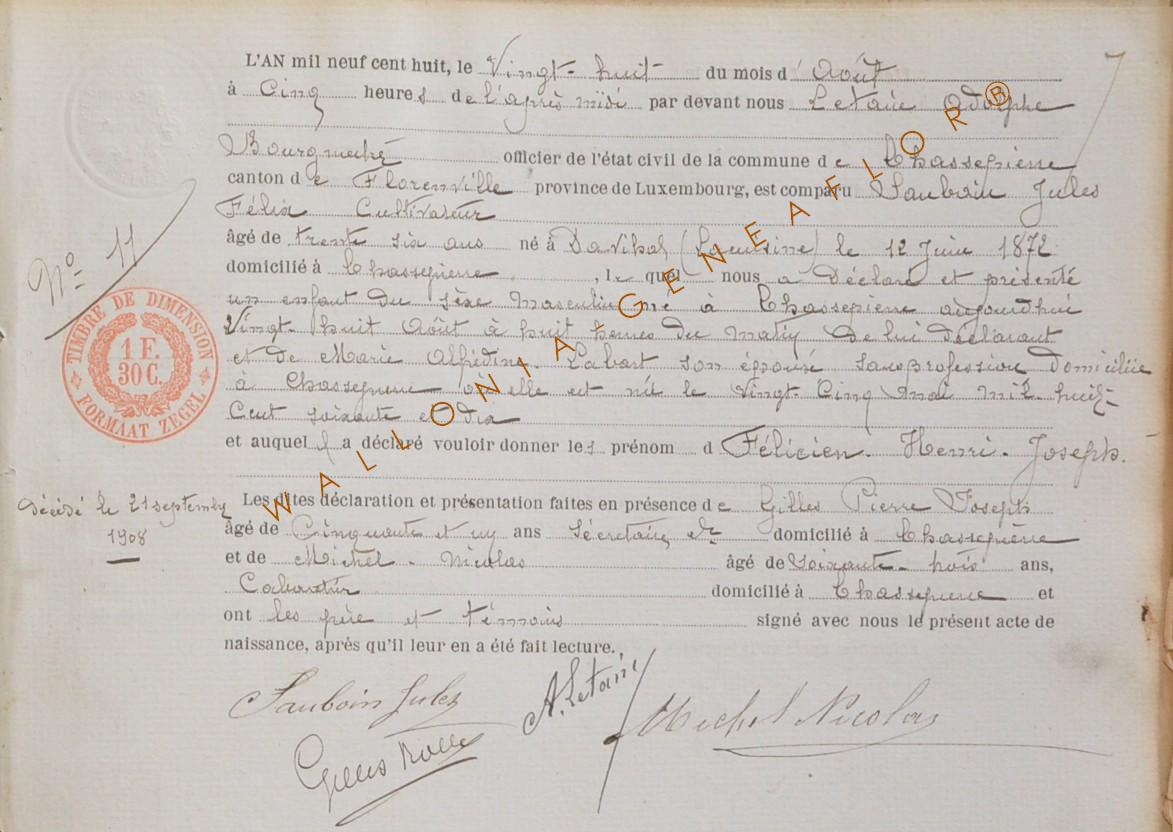 L'AN mil neuf cent huit, le Vingt-huit du mois d' Août
à Cinq heures de l'après midi par devant nous Letaie Adolphe
Bourgmestre officier de l'état civil de la commune de Chassepierre
canton de Florenville province de Luxembourg, est comparu Sauboin Jules
Félix Cultivateur
âgé de trente six ans né à Davihat ( ) le 12 Juin 1872
domicilié à Chassepierre, lequel nous a déclaré et présenté
un enfant du sexe masculin né à Chassepierre aujourdhui
Vingt huit Août à huit heures du matin de lui déclarant
et de Marie Alfrédine Labart son épouse sans profession domiciliée
à Chassepierre où elle est née le Vingt Cinq mil huit-
Cent soixante et dix
et auquel il a déclaré vouloir donner les prénom d Félicien. Henri. Joseph.
Les dites déclaration et présentation faites en présence de Gilles Pierre Joseph
âgé de Cinquante et un ans Secrétaire domicilié à Chassepierre
et de Michel. Nicolas âgé de Soixante-trois ans,
Cabaretier domicilié à Chassepierre et
ont les père et témoins signé avec nous le présent acte de
naissance, après qu'il leur en a été fait lecture.
N° 11
TIMBRE DE DIMENSION
1 F.
30 C.
FORMAAT ZEGEL
Décédé le 21 septembre
1908
Sauboin Jules
A. Letaie
Michel Nicolas
Gilles
WALLONIA GENEAFLOR®